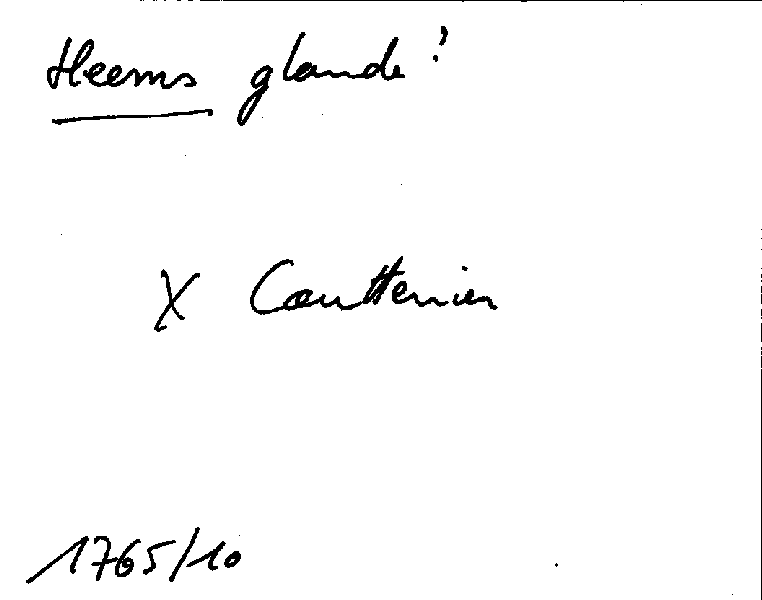 Heems glande?
X Couttenier
1765/10